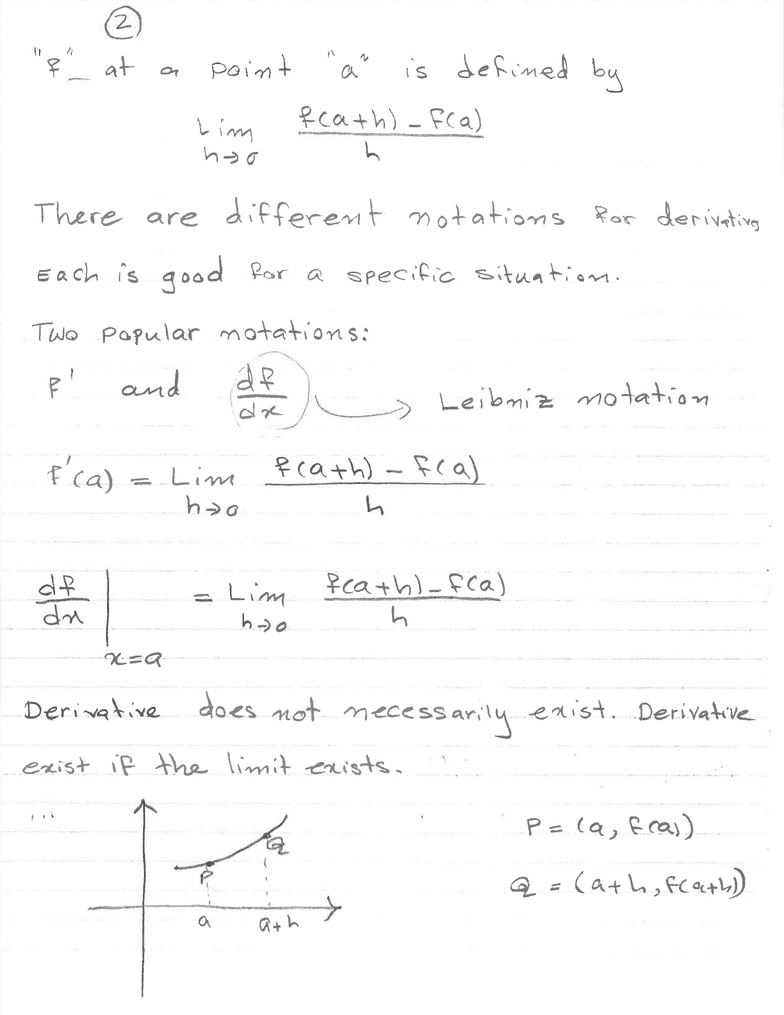 2
"f"_ at a point "a" is defined by
Lim h→0 f(a+h) - f(a) / h
There are different notations for derivative
Each is good for a specific situation.
Two popular notations:
f' and df/dx → Leibniz notation
f'(a) = Lim h→0 f(a+h) - f(a) / h
df/dx | x=a = Lim h→0 f(a+h) - f(a) / h
Derivative does not necessarily exist. Derivative
exist if the limit exists.
...
P = (a, f(a))
Q = (a+h, f(a+h))
Q
P
a a+h